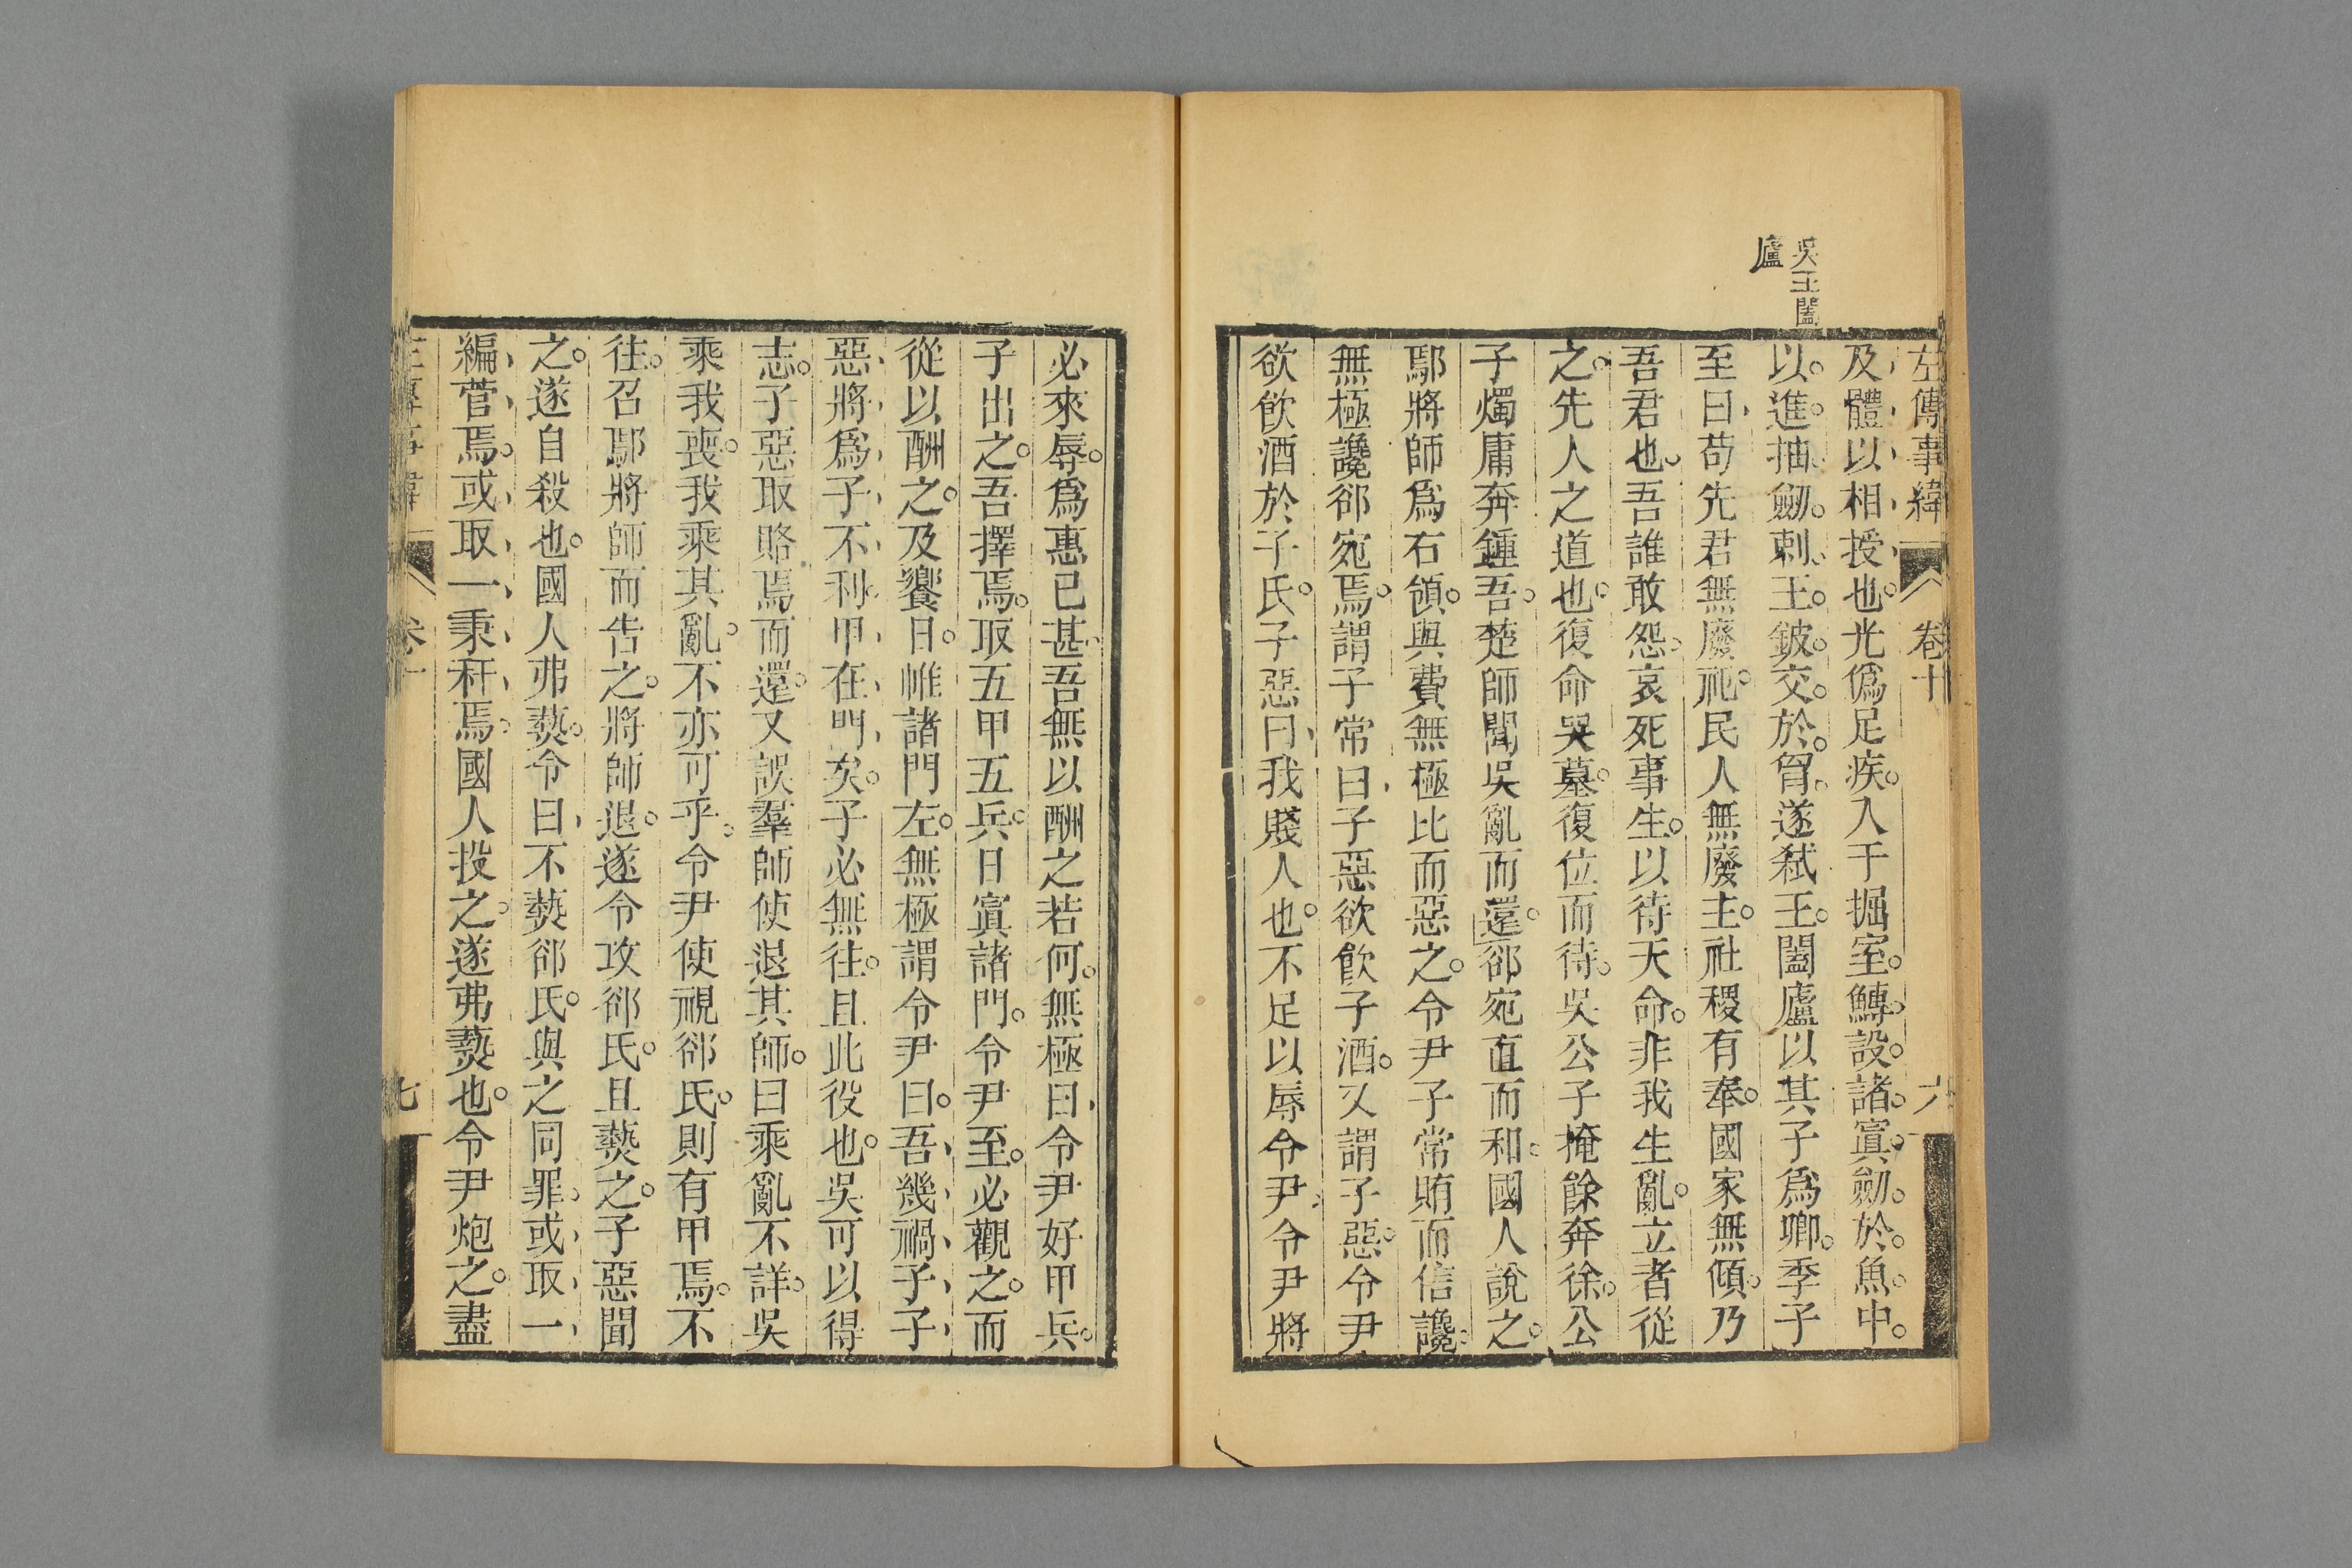 左傳事緯
卷十
六
吳王闔
廬
及體以相授也光僞足疾入于掘室鱄設諸寘劒於魚中
以進抽劒刺王鈹交於胷遂弑王闔廬以其子爲卿季子
至曰苟先君無廢祀民人無廢主社稷有奉國家無傾乃
吾君也吾誰敢怨哀死事生以待天命非我生亂立者從
之先人之道也復命哭墓復位而待吳公子掩餘奔徐公
子燭庸奔鍾吾楚師聞吳亂而還郤宛直而和國人說之
鄢將師爲右領與費無極比而惡之令尹子常賄而信讒
無極讒郤宛焉謂子常曰子惡欲飮子酒又謂子惡令尹
欲飮酒於子氏子惡曰我賤人也不足以辱令尹令尹將
必來辱爲惠已甚吾無以酬之若何無極曰令尹好甲兵
子出之吾擇焉取五甲五兵曰寘諸門令尹至必觀之而
從以酬之及饗日帷諸門左無極謂令尹曰吾幾禍子子
惡將爲子不利甲在門矣子必無往且此役也吳可以得
志子惡取賂焉而還又誤羣師使退其師曰乘亂不詳吳
乘我喪我乘其亂不亦可乎令尹使視郤氏則有甲焉不
往召鄢將師而告之將師退遂令攻郤氏且爇之子惡聞
之遂自殺也國人弗爇令曰不爇郤氏與之同罪或取一
編菅焉或取一秉秆焉國人投之遂弗爇也令尹炮之盡
七